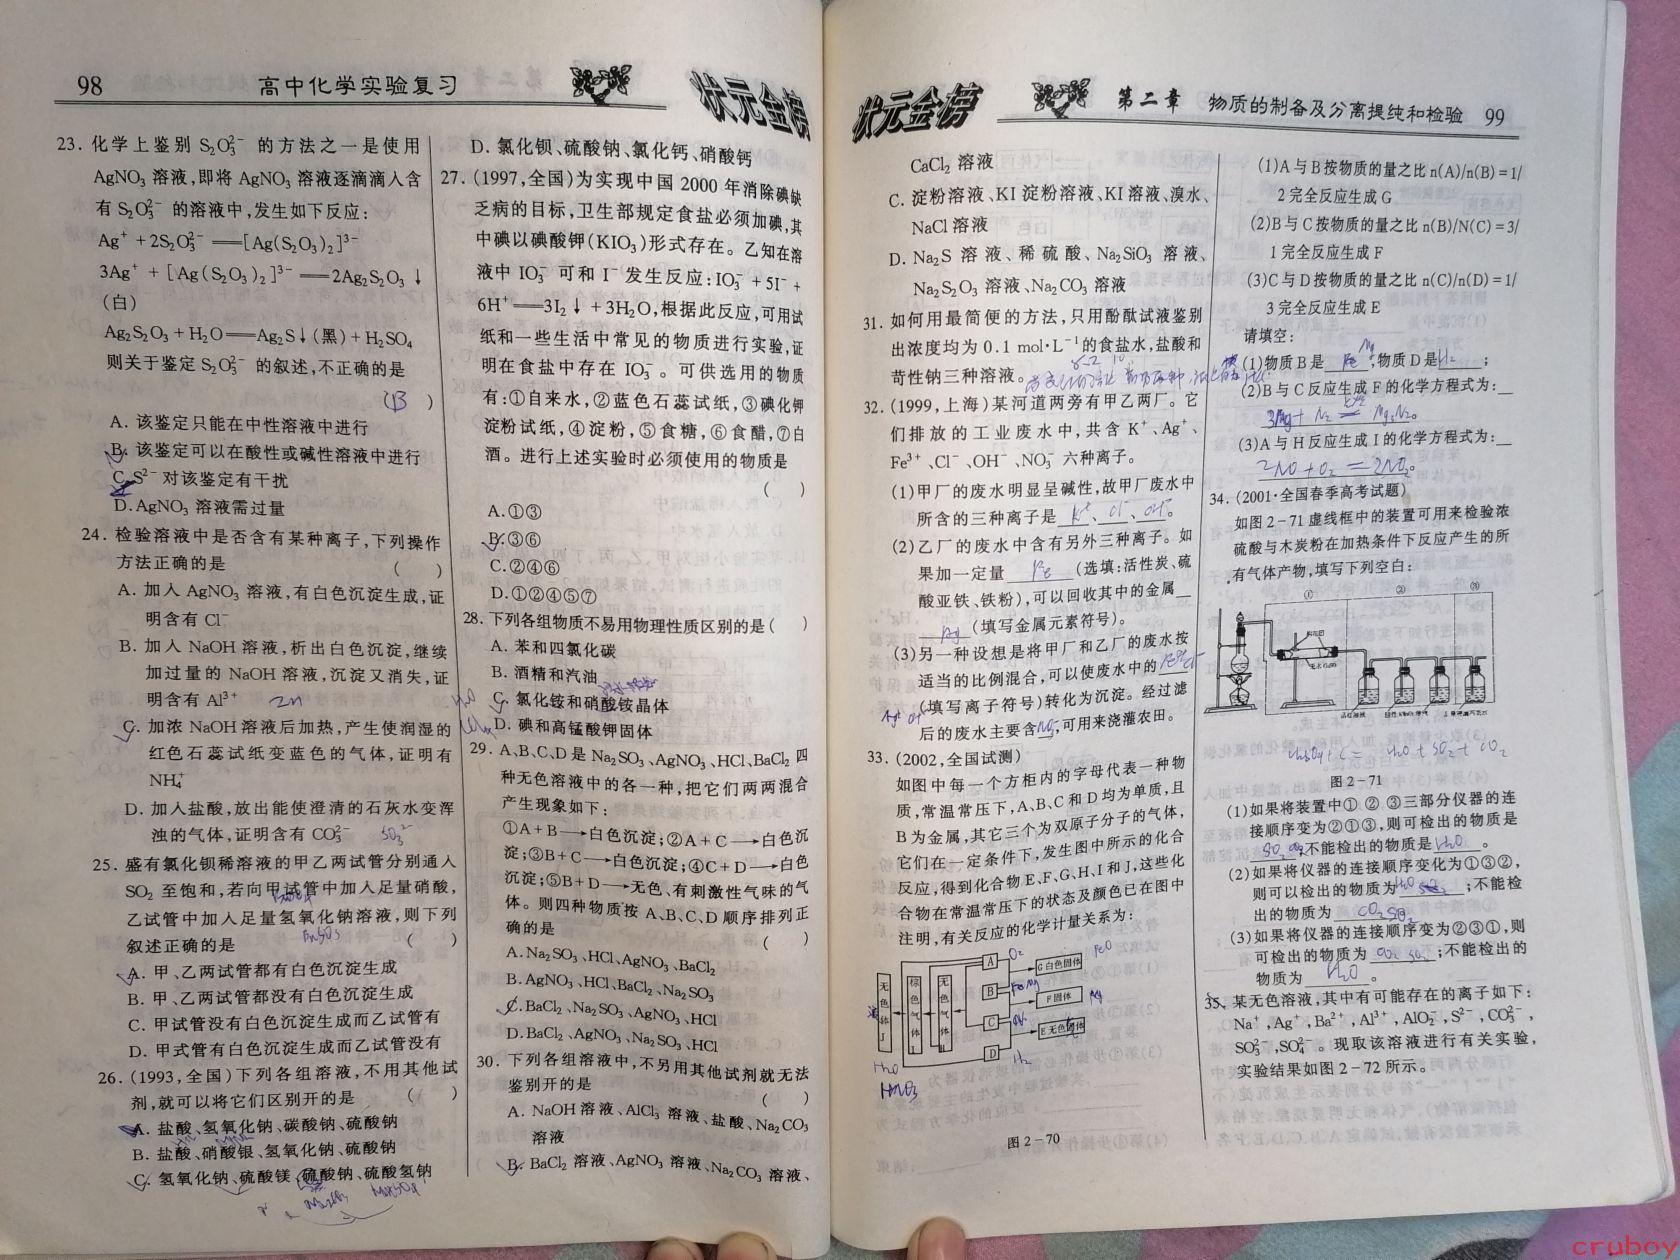 98 高中化学实验复习 状元金榜
23. 化学上鉴别 S₂O₃²⁻ 的方法之一是使用
AgNO₃ 溶液,即将 AgNO₃ 溶液逐滴滴入含
有 S₂O₃²⁻ 的溶液中,发生如下反应:
Ag⁺ + 2S₂O₃²⁻ ══ [Ag(S₂O₃)₂]³⁻
3Ag⁺ + [Ag(S₂O₃)₂]³⁻ ══ 2Ag₂S₂O₃↓
(白)
Ag₂S₂O₃ + H₂O ══ Ag₂S↓(黑) + H₂SO₄
则关于鉴定 S₂O₃²⁻ 的叙述,不正确的是
(B)
A. 该鉴定只能在中性溶液中进行
B. 该鉴定可以在酸性或碱性溶液中进行
C. S²⁻ 对该鉴定有干扰
D. AgNO₃ 溶液需过量
24. 检验溶液中是否含有某种离子,下列操作
方法正确的是 ( )
A. 加入 AgNO₃ 溶液,有白色沉淀生成,证
明含有 Cl⁻
B. 加入 NaOH 溶液,析出白色沉淀,继续
加过量的 NaOH 溶液,沉淀又消失,证
明含有 Al³⁺ Zn
C. 加浓 NaOH 溶液后加热,产生使润湿的
红色石蕊试纸变蓝色的气体,证明有
NH₄⁺
D. 加入盐酸,放出能使澄清的石灰水变浑
浊的气体,证明含有 CO₃²⁻ SO₃²⁻
25. 盛有氯化钡稀溶液的甲乙两试管分别通入
SO₂ 至饱和,若向甲试管中加入足量硝酸,
BaSO₄
乙试管中加入足量氢氧化钠溶液,则下列
BaSO₃
叙述正确的是 ( )
A. 甲、乙两试管都有白色沉淀生成
B. 甲、乙两试管都没有白色沉淀生成
C. 甲试管没有白色沉淀生成而乙试管有
D. 甲式管有白色沉淀生成而乙试管没有
26. (1993,全国)下列各组溶液,不用其他试
剂,就可以将它们区别开的是 ( )
A. 盐酸、氢氧化钠、碳酸钠、硫酸钠
B. 盐酸、硝酸银、氢氧化钠、硫酸钠
C. 氢氧化钠、硫酸镁、硫酸钠、硫酸氢钠
D. 氯化钡、硫酸钠、氯化钙、硝酸钙
27. (1997,全国)为实现中国 2000 年消除碘缺
乏病的目标,卫生部规定食盐必须加碘,其
中碘以碘酸钾(KIO₃)形式存在。乙知在溶
液中 IO₃⁻ 可和 I⁻ 发生反应:IO₃⁻ + 5I⁻ +
6H⁺ ══ 3I₂↓ + 3H₂O,根据此反应,可用试
纸和一些生活中常见的物质进行实验,证
明在食盐中存在 IO₃⁻。可供选用的物质
有:①自来水,②蓝色石蕊试纸,③碘化钾
淀粉试纸,④淀粉,⑤食糖,⑥食醋,⑦白
酒。进行上述实验时必须使用的物质是
( )
A. ①③
B. ③⑥
C. ②④⑥
D. ①②④⑤⑦
28. 下列各组物质不易用物理性质区别的是( )
A. 苯和四氯化碳
B. 酒精和汽油
C. 氯化铵和硝酸铵晶体
D. 碘和高锰酸钾固体
29. A、B、C、D 是 Na₂SO₃、AgNO₃、HCl、BaCl₂ 四
种无色溶液中的各一种,把它们两两混合
产生现象如下:
①A + B ⟶ 白色沉淀;②A + C ⟶ 白色沉
淀;③B + C ⟶ 白色沉淀;④C + D ⟶ 白色
沉淀;⑤B + D ⟶ 无色、有刺激性气味的气
体。则四种物质按 A、B、C、D 顺序排列正
确的是 ( )
A. Na₂SO₃、HCl、AgNO₃、BaCl₂
B. AgNO₃、HCl、BaCl₂、Na₂SO₃
C. BaCl₂、Na₂SO₃、AgNO₃、HCl
D. BaCl₂、AgNO₃、Na₂SO₃、HCl
30. 下列各组溶液中,不另用其他试剂就无法
鉴别开的是 ( )
A. NaOH 溶液、AlCl₃ 溶液、盐酸、Na₂CO₃
溶液
B. BaCl₂ 溶液、AgNO₃ 溶液、Na₂CO₃ 溶液、
状元金榜 第二章 物质的制备及分离提纯和检验 99
CaCl₂ 溶液
C. 淀粉溶液、KI 淀粉溶液、KI 溶液、溴水、
NaCl 溶液
D. Na₂S 溶液、稀硫酸、Na₂SiO₃ 溶液、
Na₂S₂O₃ 溶液、Na₂CO₃ 溶液
31. 如何用最简便的方法,只用酚酞试液鉴别
出浓度均为 0.1 mol·L⁻¹ 的食盐水,盐酸和
苛性钠三种溶液。
32. (1999,上海)某河道两旁有甲乙两厂。它
们排放的工业废水中,共含 K⁺、Ag⁺、
Fe³⁺、Cl⁻、OH⁻、NO₃⁻ 六种离子。
(1)甲厂的废水明显呈碱性,故甲厂废水中
所含的三种离子是 K⁺、Cl⁻、OH⁻。
(2)乙厂的废水中含有另外三种离子。如
果加一定量 Fe (选填:活性炭、硫
酸亚铁、铁粉),可以回收其中的金属
Ag (填写金属元素符号)。
(3)另一种设想是将甲厂和乙厂的废水按
适当的比例混合,可以使废水中的 Fe³⁺ Cl⁻
Ag⁺ OH⁻ (填写离子符号)转化为沉淀。经过滤
后的废水主要含 NO₃,可用来浇灌农田。
33. (2002,全国试测)
如图中每一个方柜内的字母代表一种物
质,常温常压下,A、B、C 和 D 均为单质,且
B 为金属,其它三个为双原子分子的气体,
它们在一定条件下,发生图中所示的化合
反应,得到化合物 E、F、G、H、I 和 J,这些化
合物在常温常压下的状态及颜色已在图中
注明,有关反应的化学计量关系为:
无色液体 J
棕色气体 I
无色气体 H
A O₂
B Mg
C N₂
D H₂
G 白色固体
F 固体
E 无色气体
H₂O
HNO₃
图 2－70
(1)A 与 B 按物质的量之比 n(A)/n(B) = 1/
2 完全反应生成 G
(2)B 与 C 按物质的量之比 n(B)/N(C) = 3/
1 完全反应生成 F
(3)C 与 D 按物质的量之比 n(C)/n(D) = 1/
3 完全反应生成 E
请填空:
(1)物质 B 是 Mg ,物质 D 是 H₂ ;
(2)B 与 C 反应生成 F 的化学方程式为:
3Mg + N₂ ══ Mg₃N₂。
(3)A 与 H 反应生成 I 的化学方程式为:
2NO + O₂ ══ 2NO₂。
34. (2001·全国春季高考试题)
如图 2－71 虚线框中的装置可用来检验浓
硫酸与木炭粉在加热条件下反应产生的所
有气体产物,填写下列空白:
① ② ③
H₂SO₄ + C = H₂O + SO₂ + CO₂
图 2－71
(1)如果将装置中①、②、③三部分仪器的连
接顺序变为②①③,则可检出的物质是
SO₂ CO₂;不能检出的物质是 H₂O 。
(2)如果将仪器的连接顺序变化为①③②,
则可以检出的物质为 H₂O ;不能检
出的物质为 CO₂ SO₂
(3)如果将仪器的连接顺序变为②③①,则
可检出的物质为 CO₂ SO₂ ;不能检出的
物质为 H₂O 。
35. 某无色溶液,其中有可能存在的离子如下:
Na⁺、Ag⁺、Ba²⁺、Al³⁺、AlO₂⁻、S²⁻、CO₃²⁻、
SO₃²⁻、SO₄²⁻。现取该溶液进行有关实验,
实验结果如图 2－72 所示。
cruboy